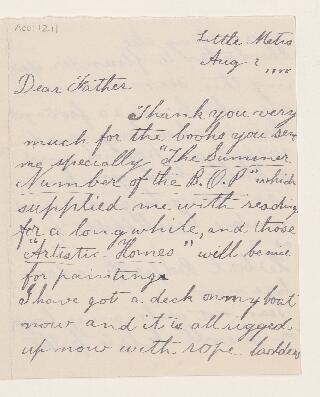 Acc: 1211
Little Metis
Aug 2
Dear Father
Thank you very
much for the books you sen
me specially "The Summer
Number of the B.O.P" which
supplied me with reading
for a long while, and those
"Artistic Homes" will be nice
for painting
I have got a deck on my boat
now and it is all rigged
up now with rope ladders